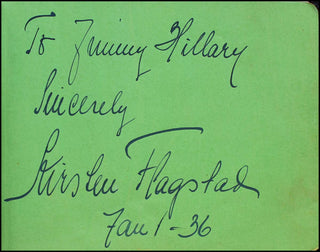 To Jimmy Hillary
Sincerely
Kirsten Flagstad
Jan 1-36